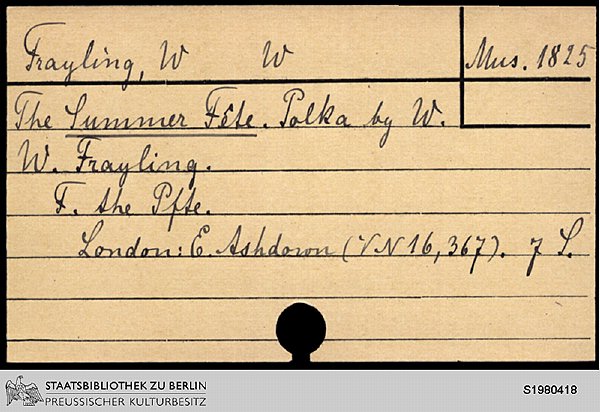 Frayling, W W Mus. 1825
The Summer Fête. Polka by W.
W. Frayling.
F. the Pfte.
London: E. Ashdown (VN 16,367). 7 S.
STAATSBIBLIOTHEK ZU BERLIN
PREUSSISCHER KULTURBESITZ
S1980418